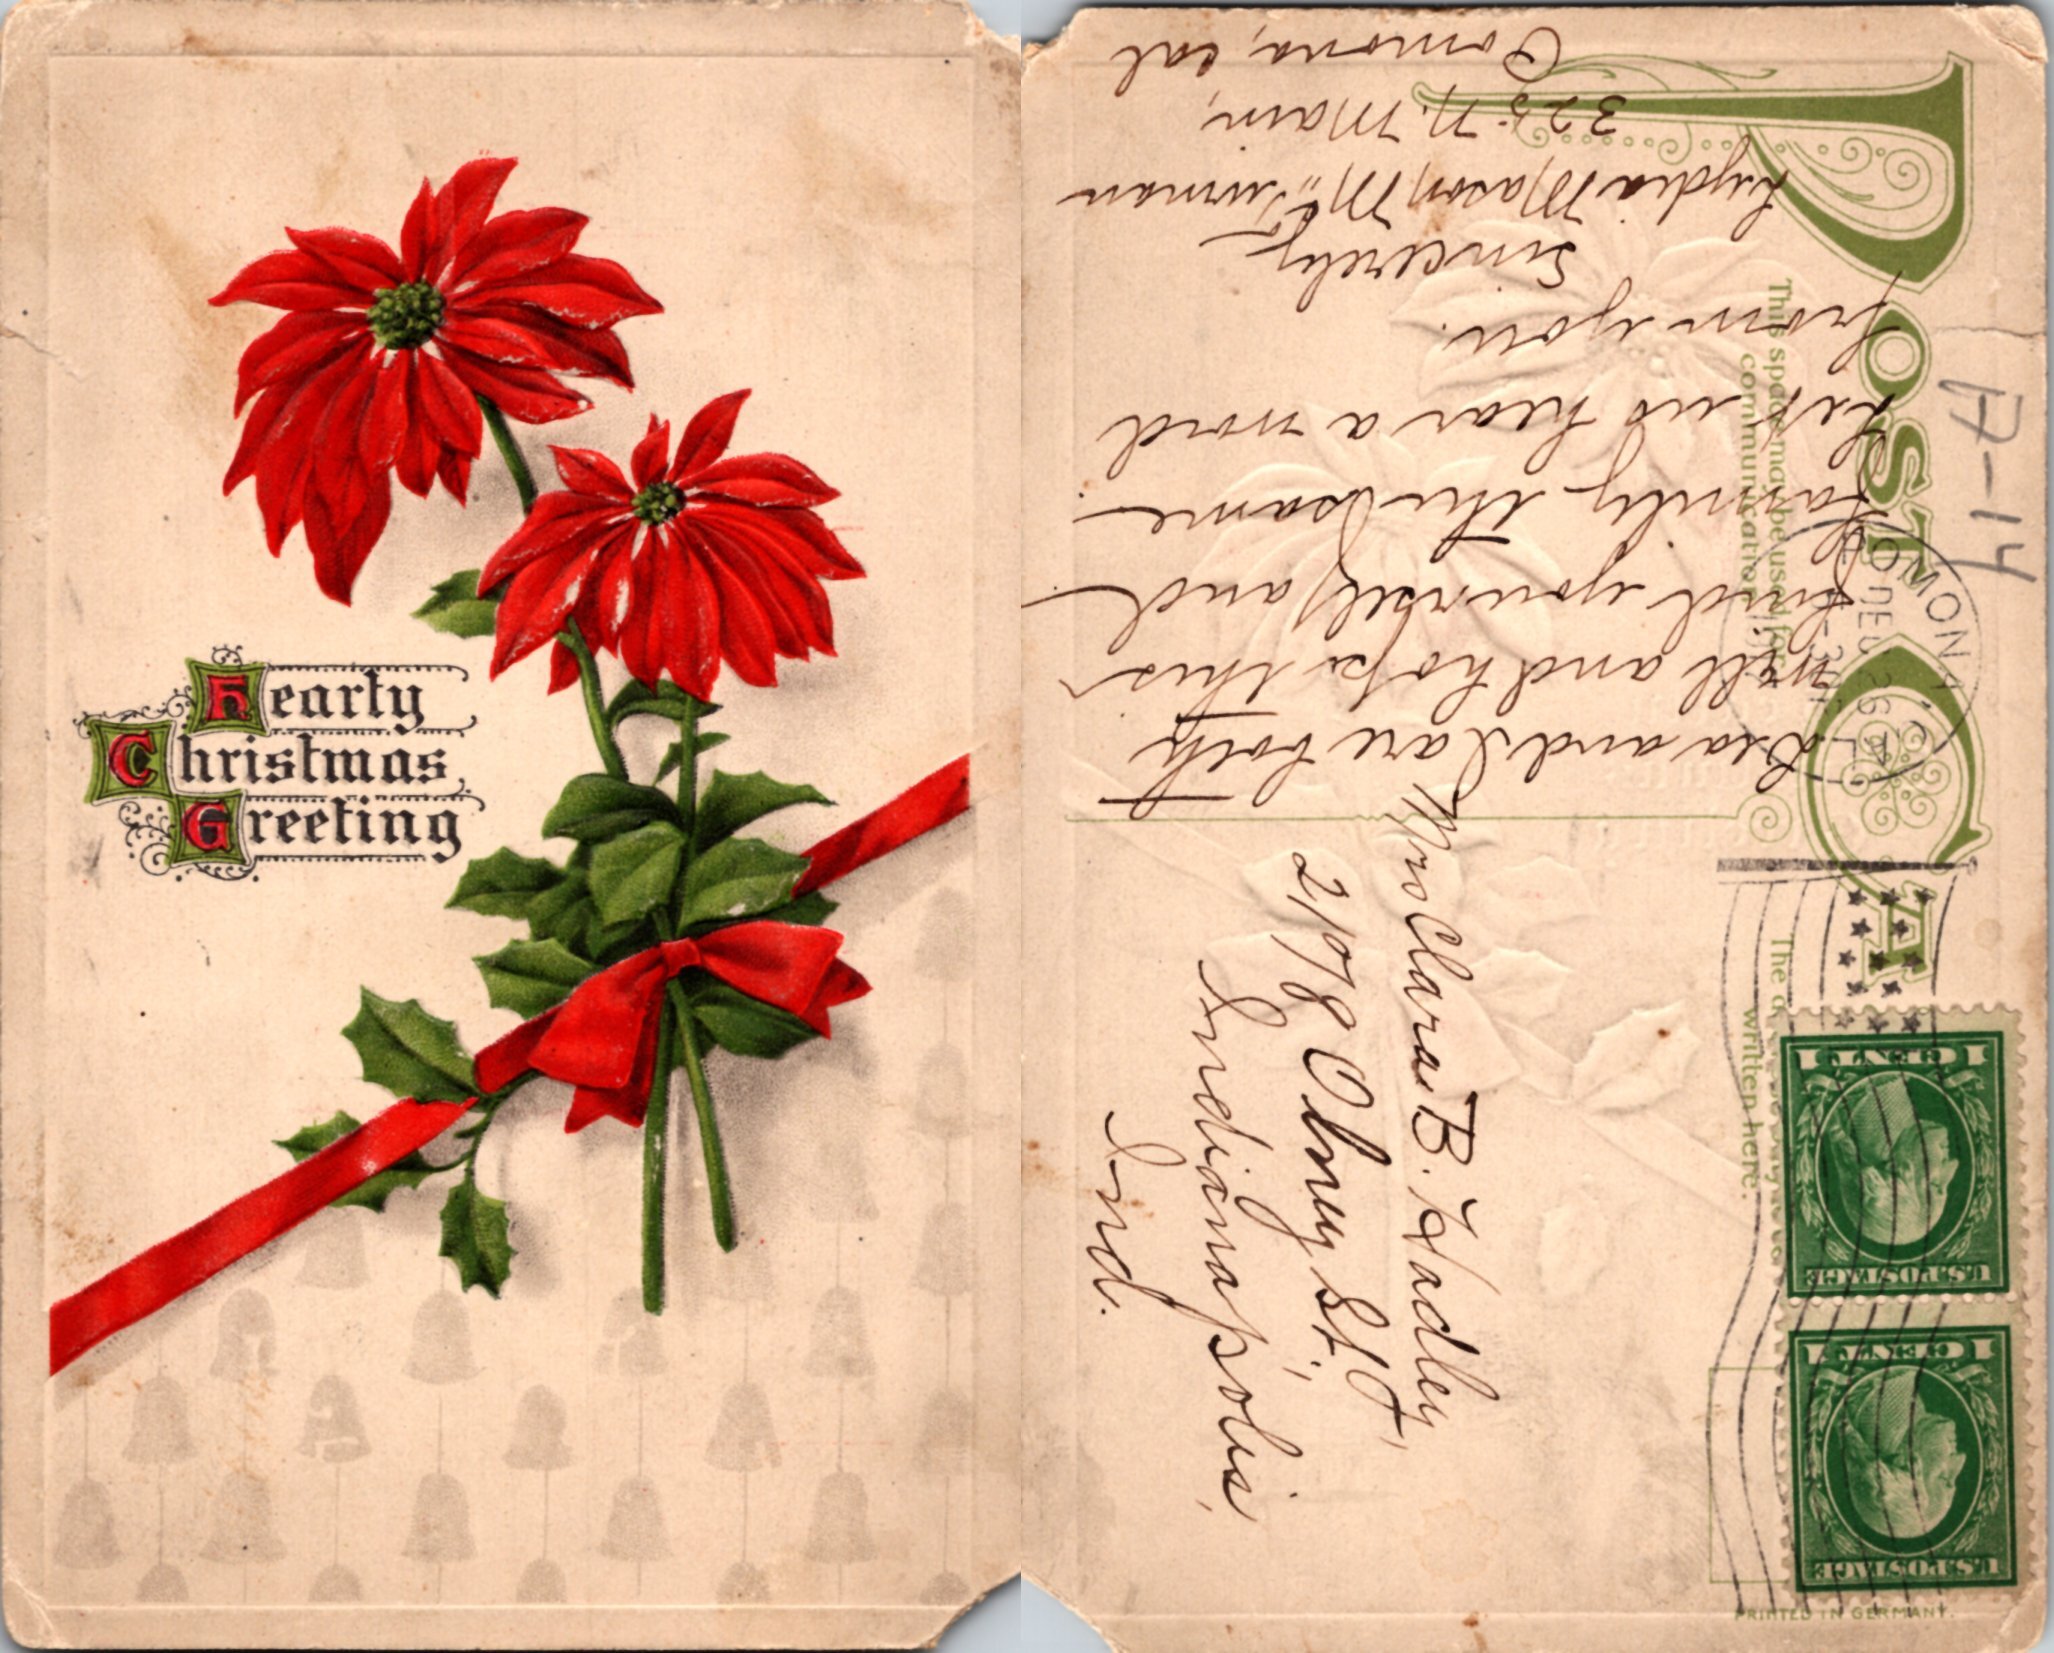 Hearty
Christmas
Greeting
POST CA
This space may be used for
communication
The
written here.
POMONA
DEC 26
CAL
A-14
Lea and I are both
well and hope this
find yourself and
family the same
Let us hear a word
from you.
Sincerely
Lydia Mason
325 N. Main,
Pomona, Cal
Mrs Clara B. Hadley,
2108 Olney St,
Indianapolis,
Ind.
U.S. POSTAGE
1 CENT 1
U.S. POSTAGE
1 CENT 1
PRINTED IN GERMANY.